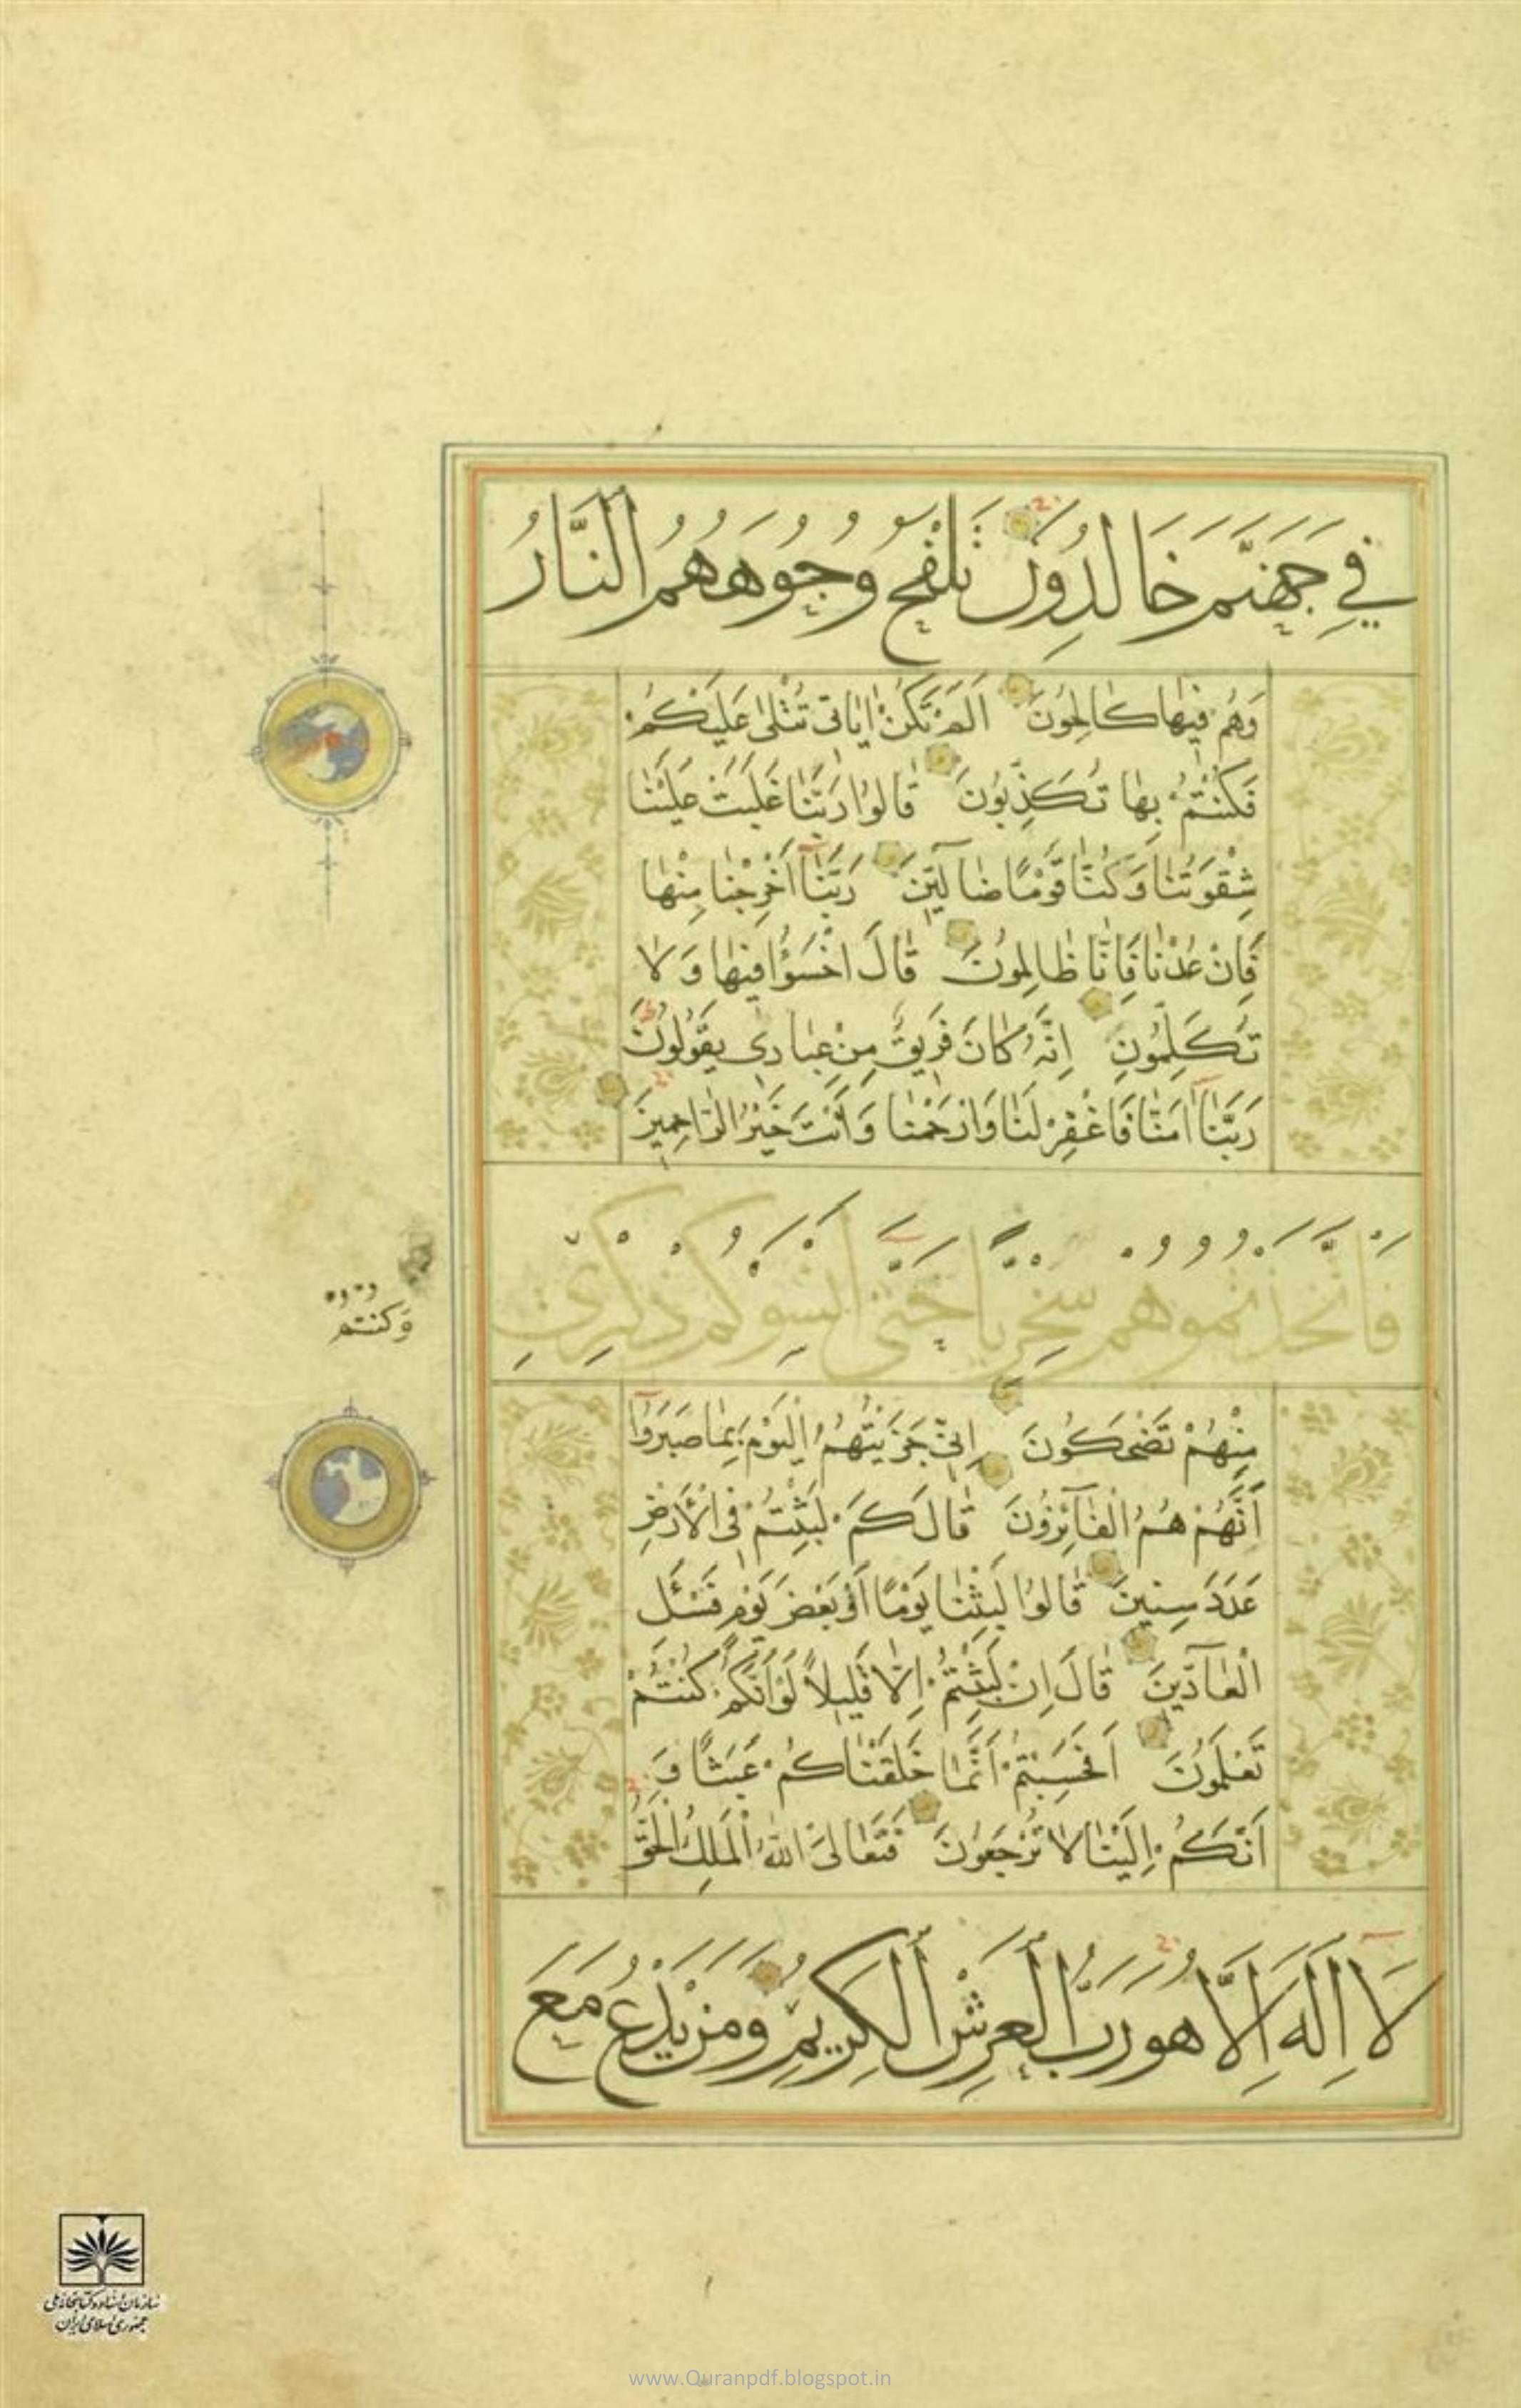 فِي جَهَنَّمَ خَالِدُونَ تَلْفَحُ وُجُوهَهُمُ النَّارُ
وَهُمْ فِيهَا كَالِحُونَ اَلَمْ تَكُنْ اٰيَاتِي تُتْلٰى عَلَيْكُمْ
فَكُنْتُمْ بِهَا تُكَذِّبُونَ قَالُوا رَبَّنَا غَلَبَتْ عَلَيْنَا
شِقْوَتُنَا وَكُنَّا قَوْمًا ضَالِّينَ رَبَّنَا اَخْرِجْنَا مِنْهَا
فَاِنْ عُدْنَا فَاِنَّا ظَالِمُونَ قَالَ اخْسَؤُا فِيهَا وَلَا
تُكَلِّمُونِ اِنَّهُ كَانَ فَرِيقٌ مِنْ عِبَادِي يَقُولُونَ
رَبَّنَا اٰمَنَّا فَاغْفِرْ لَنَا وَارْحَمْنَا وَاَنْتَ خَيْرُ الرَّاحِمِينَ
فَاتَّخَذْتُمُوهُمْ سِخْرِيًّا حَتّٰى اَنْسَوْكُمْ ذِكْرِي
وَكُنْتُمْ
مِنْهُمْ تَضْحَكُونَ اِنِّي جَزَيْتُهُمُ الْيَوْمَ بِمَا صَبَرُوا
اَنَّهُمْ هُمُ الْفَآئِزُونَ قَالَ كَمْ لَبِثْتُمْ فِي الْاَرْضِ
عَدَدَ سِنِينَ قَالُوا لَبِثْنَا يَوْمًا اَوْ بَعْضَ يَوْمٍ فَسْئَلِ
الْعَآدِّينَ قَالَ اِنْ لَبِثْتُمْ اِلَّا قَلِيلًا لَوْ اَنَّكُمْ كُنْتُمْ
تَعْلَمُونَ اَفَحَسِبْتُمْ اَنَّمَا خَلَقْنَاكُمْ عَبَثًا وَ
اَنَّكُمْ اِلَيْنَا لَا تُرْجَعُونَ فَتَعَالَى اللّٰهُ الْمَلِكُ الْحَقُّ
لَا اِلٰهَ اِلَّا هُوَ رَبُّ الْعَرْشِ الْكَرِيمِ وَمَنْ يَدْعُ مَعَ
سازمان اسناد و کتابخانه ملی
جمهوری اسلامی ایران
www.Quranpdf.blogspot.in